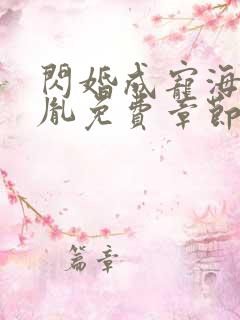 閃婚成寵海
胤免費章節
篇章